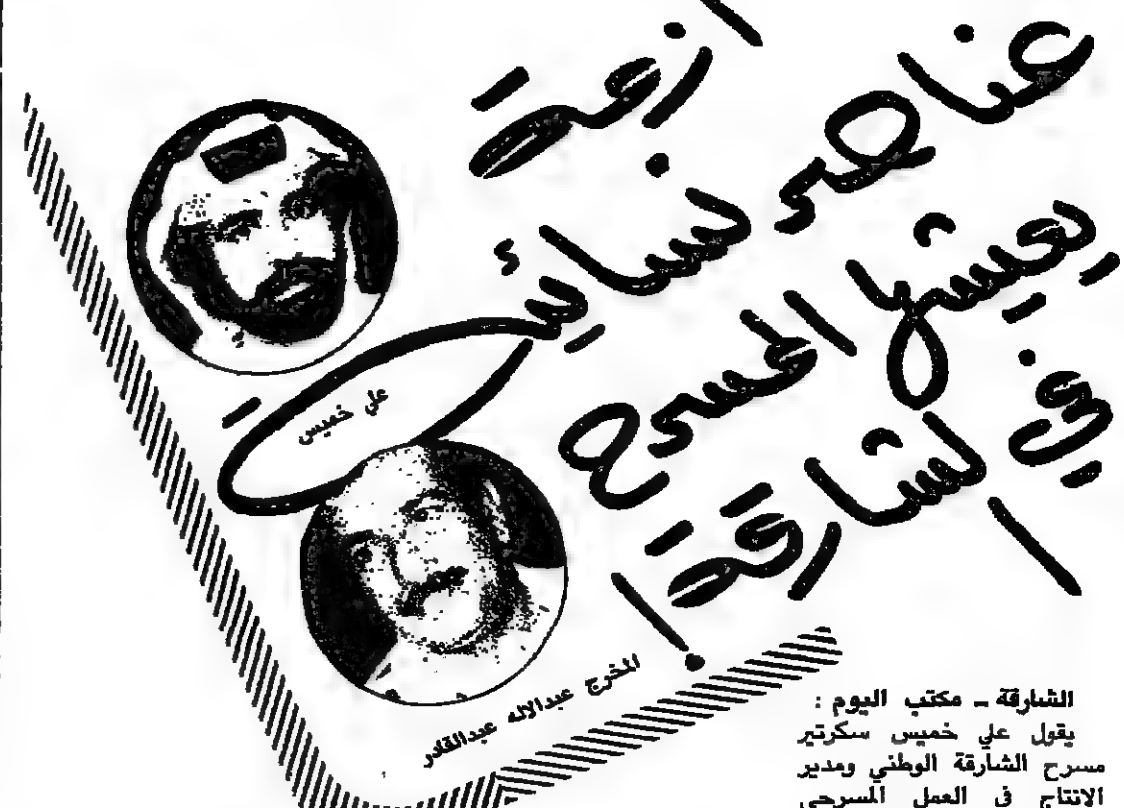 أزمة
عناصر نسائية
يعيشها المسرح
في الشارقة!
علي خميس
المخرج عبدالاله عبدالقادر
الشارقة ـ مكتب اليوم :
يقول علي خميس سكرتير
مسرح الشارقة الوطني ومدير
الانتاج في العمل المسرحي